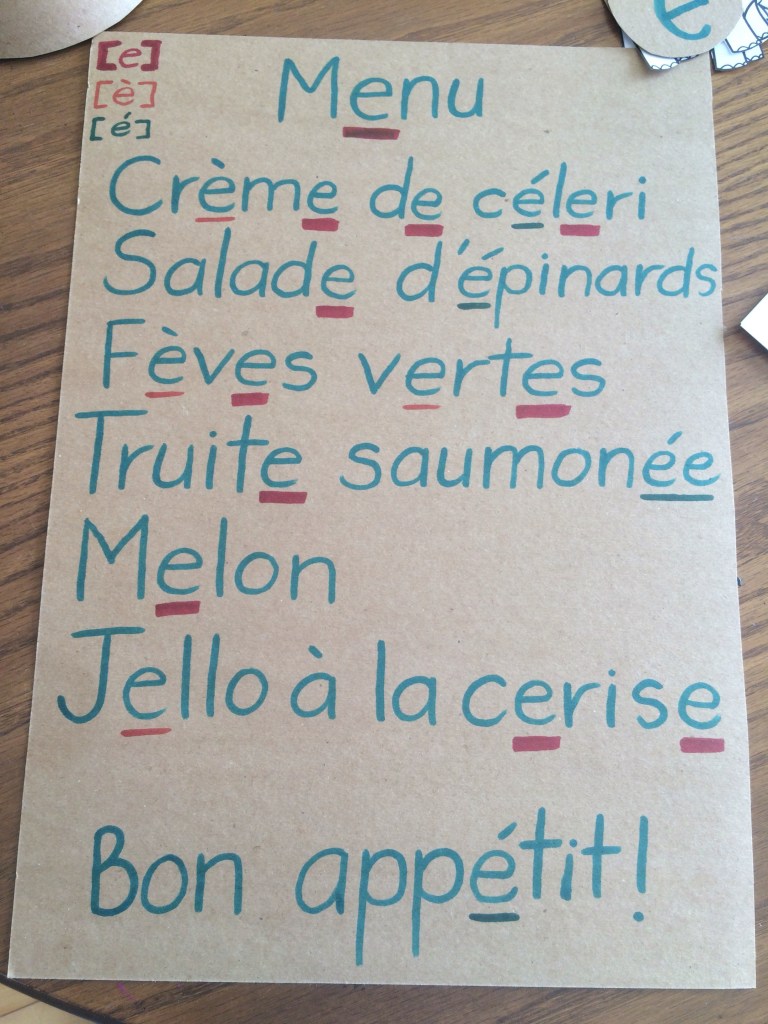 [e]
[è]
[é]
Menu
Crème de céleri
Salade d'épinards
Fèves vertes
Truite saumonée
Melon
Jello à la cerise
Bon appétit!